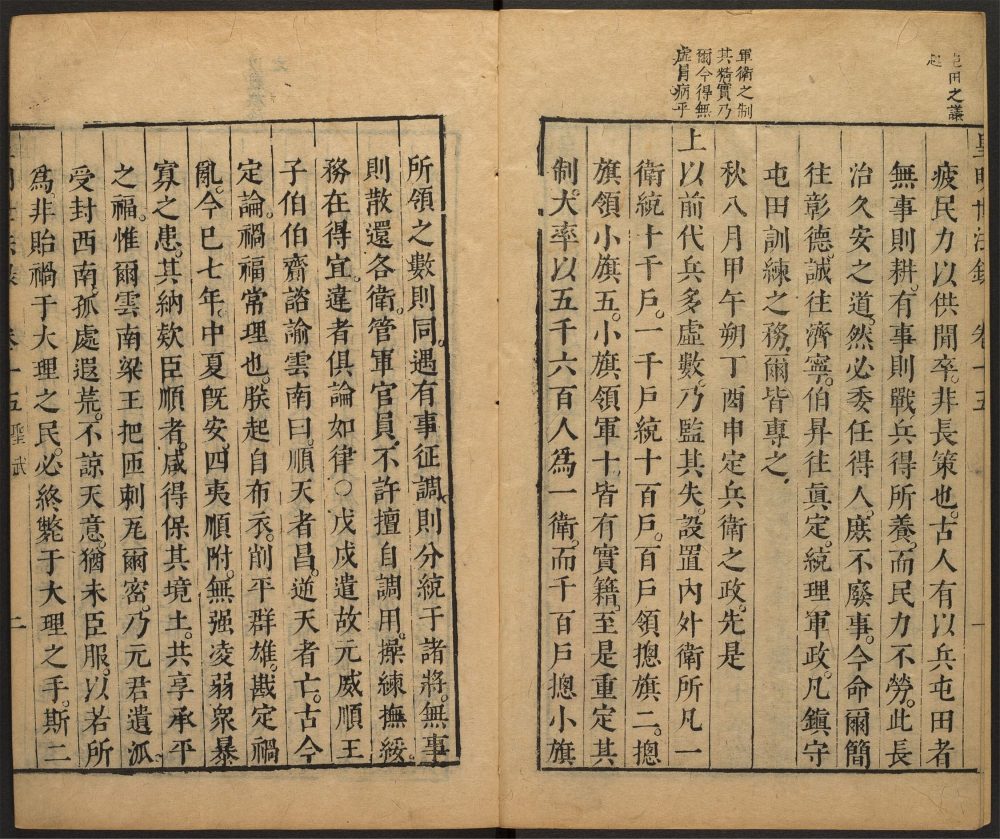 屯田之議
軍衛之制
其精實乃
爾今得無
虛冒病乎
皇明世法錄 卷十五 一
疲民力以供閒卒。非長策也。古人有以兵屯田者
無事則耕。有事則戰兵得所養。而民力不勞。此長
治久安之道。然必委任得人。庶不廢事。今命爾簡
往彰德。誠往濟寧。伯昇往真定。統理軍政。凡鎮守
屯田訓練之務。爾皆專之。
秋八月甲午朔丁酉申定兵衛之政。先是
上以前代兵多虛數。乃監其失。設置內外衛所凡一
衛統十千戶。一千戶統十百戶。百戶領摠旗二。摠
旗領小旗五。小旗領軍十。皆有實籍。至是重定其
制。大率以五千六百人爲一衛。而千百戶摠小旗
所領之數則同。遇有事征調則分統于諸將。無事
則散還各衛。管軍官員。不許擅自調用。操練撫綏
務在得宜。違者俱論如律○戊戌遣故元威順王
子伯伯齎諮諭雲南曰。順天者昌。逆天者亡。古今
定論。禍福常理也。朕起自布衣。削平群雄。戡定禍
亂。今已七年。中夏旣安。四夷順附。無强凌弱衆暴
寡之患。其納欵臣順者。咸得保其境土。共享承平
之福。惟爾雲南梁王把匝剌瓦爾密。乃元君遺派
受封西南孤處遐荒。不諒天意。猶未臣服。以若所
爲非貽禍于大理之民。必終斃于大理之手。斯二
卷十五 聖武 二